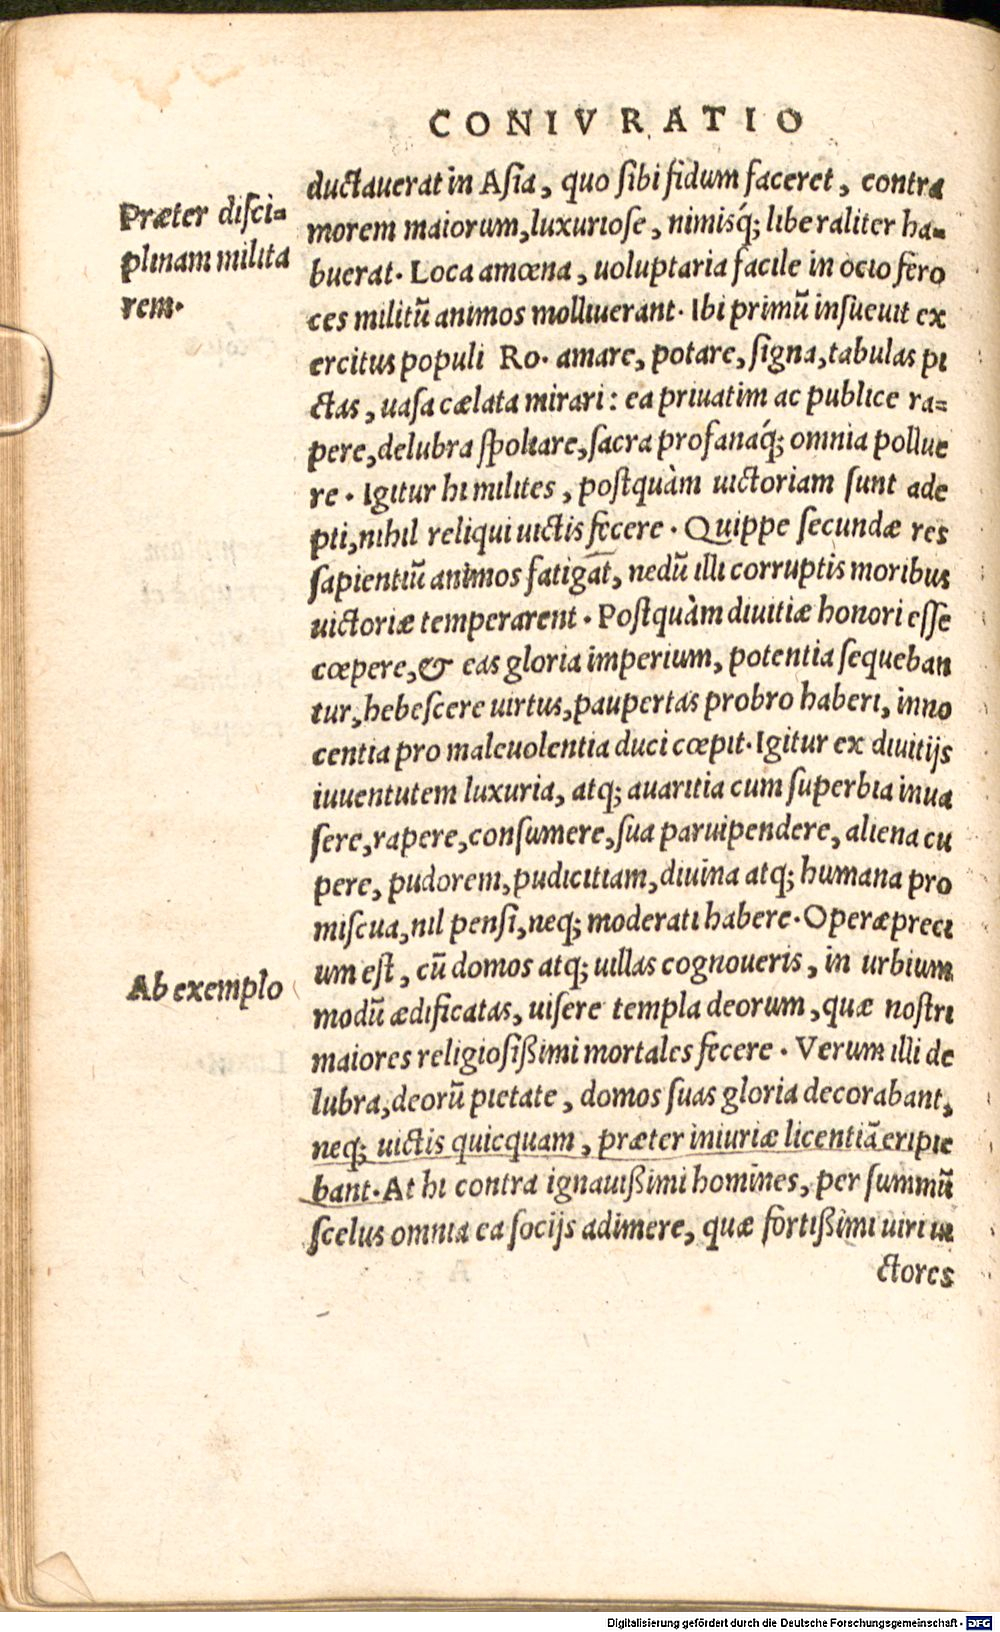 CONIVRATIO
ductauerat in Asia, quo sibi fidum faceret, contra
morem maiorum, luxuriose, nimisq́; liberaliter ha=
buerat. Loca amœna, uoluptaria facile in ocio fero
ces militũ animos molliuerant. Ibi primũ insueuit ex
ercitus populi Ro. amare, potare, signa, tabulas pi
ctas, uasa cælata mirari: ea priuatim ac publice ra=
pere, delubra spoliare, sacra profanaq́; omnia pollue
re. Igitur hi milites, postquàm uictoriam sunt ade
pti, nihil reliqui uictis fecere. Quippe secundæ res
sapientiũ animos fatigāt, nedũ illi corruptis moribus
uictoriæ temperarent. Postquàm diuitiæ honori esse
cœpere, & eas gloria imperium, potentia sequeban
tur, hebescere uirtus, paupertas probro haberi, inno
centia pro maleuolentia duci cœpit. Igitur ex diuitijs
iuuentutem luxuria, atq; auaritia cum superbia inua
sere, rapere, consumere, sua paruipendere, aliena cu
pere, pudorem, pudicitiam, diuina atq; humana pro
miscua, nil pensi, neq; moderati habere. Operæpreci
um est, cũ domos atq; uillas cognoueris, in urbium
modũ ædificatas, uisere templa deorum, quæ nostri
maiores religiosißimi mortales fecere. Verum illi de
lubra, deorũ pietate, domos suas gloria decorabant,
neq; uictis quicquam, præter iniuriæ licentiã eripie
bant. At hi contra ignauißimi homines, per summũ
scelus omnia ea socijs adimere, quæ fortißimi uiri ui
ctores
Præter disci=
plinam milita
rem.
Ab exemplo
Digitalisierung gefördert durch die Deutsche Forschungsgemeinschaft - DFG